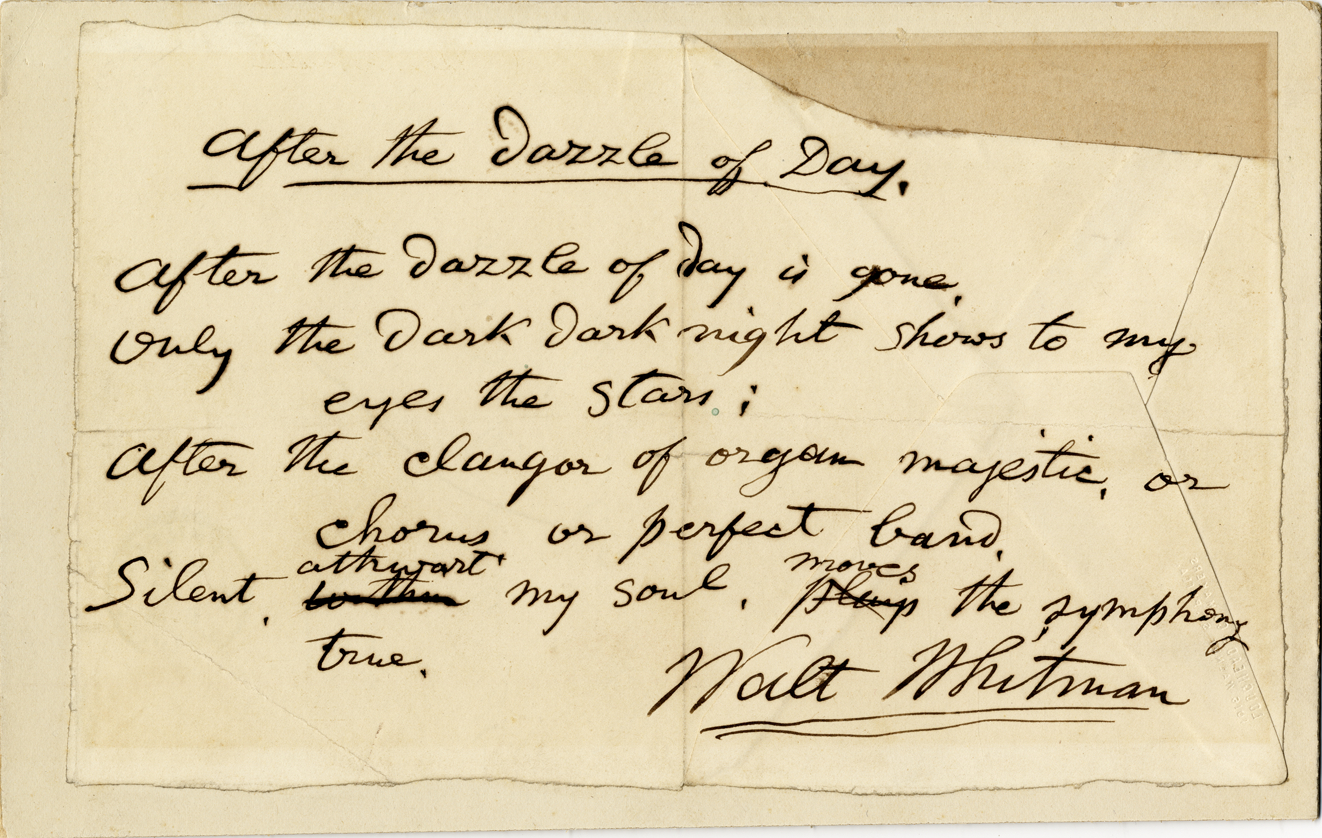 After the Dazzle of Day.
After the Dazzle of Day is gone,
Only the Dark Dark night shows to my
eyes the stars;
After the clangor of organ majestic, or
chorus or perfect band,
athwart moves
Silent, within my soul, plays the symphony
true.
Walt Whitman